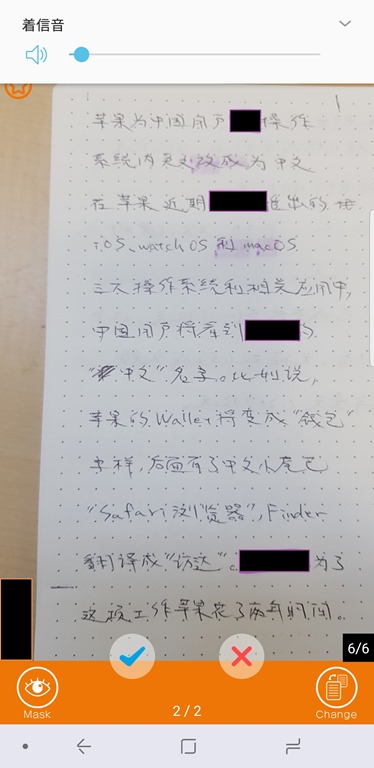 着信音
苹果为中国用户 操作
系统内 改成为中文
在苹果近期 推出的
iOS、watchOS 和 macOS
三大操作系统和相关应用中,
中国用户将看到 的
"中文"名字。比如说,
苹果的 Wallet 将变成"钱包"
字样,后面有了中文小尾巴
"Safari 浏览器", Finder
翻译成"访达"。 为了
这项工作苹果花了两年时间。
6/6
Mask
2 / 2
Change